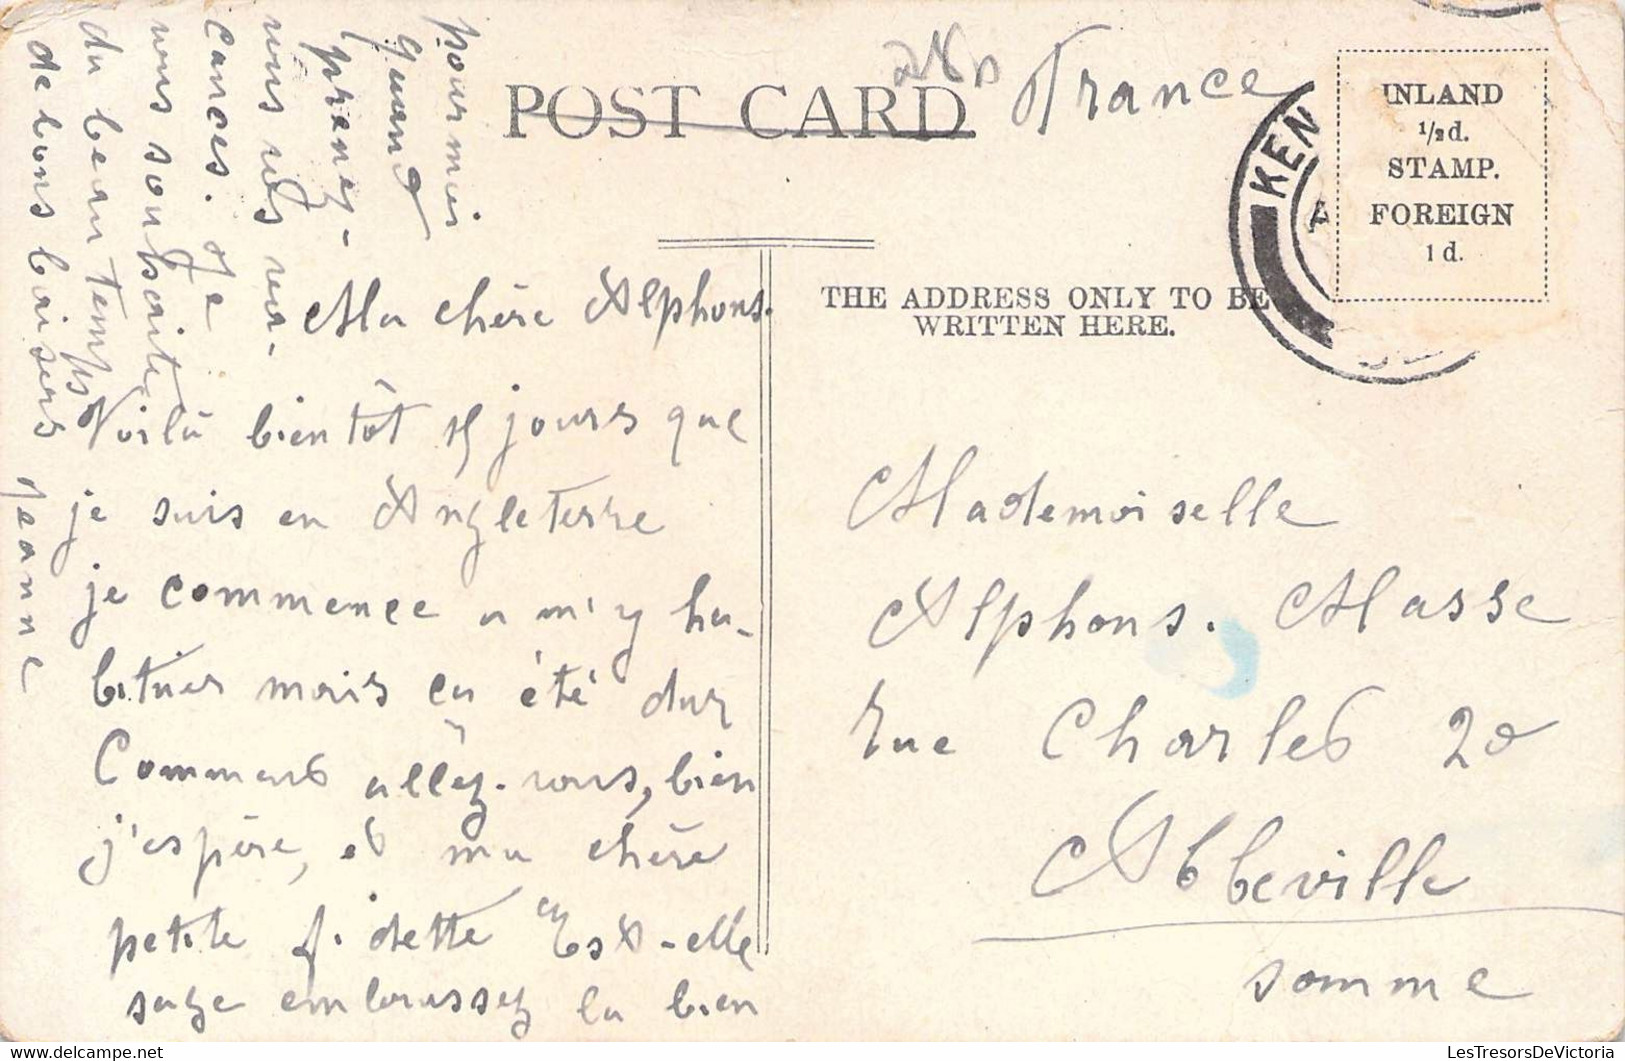 POST CARD
France
INLAND
1/2d.
STAMP.
FOREIGN
1d.
KEN
THE ADDRESS ONLY TO BE
WRITTEN HERE.
Ma chère Alphons.
Voilà bientôt 15 jours que
je suis en Angleterre
je commence a m'y ha-
bituer mais ca été dur
Comment allez-vous, bien
j'espère, et ma chère
petite fidette Est-elle
sage embrassez la bien
pour moi
quand
prenez-
vous vos va-
cances. Je
vous souhaite
du beau temps
de bons baisers
Jeanne
Mademoiselle
Alphons. Masse
rue Charles 20
Abbeville
somme
LesTresorsDeVictoria